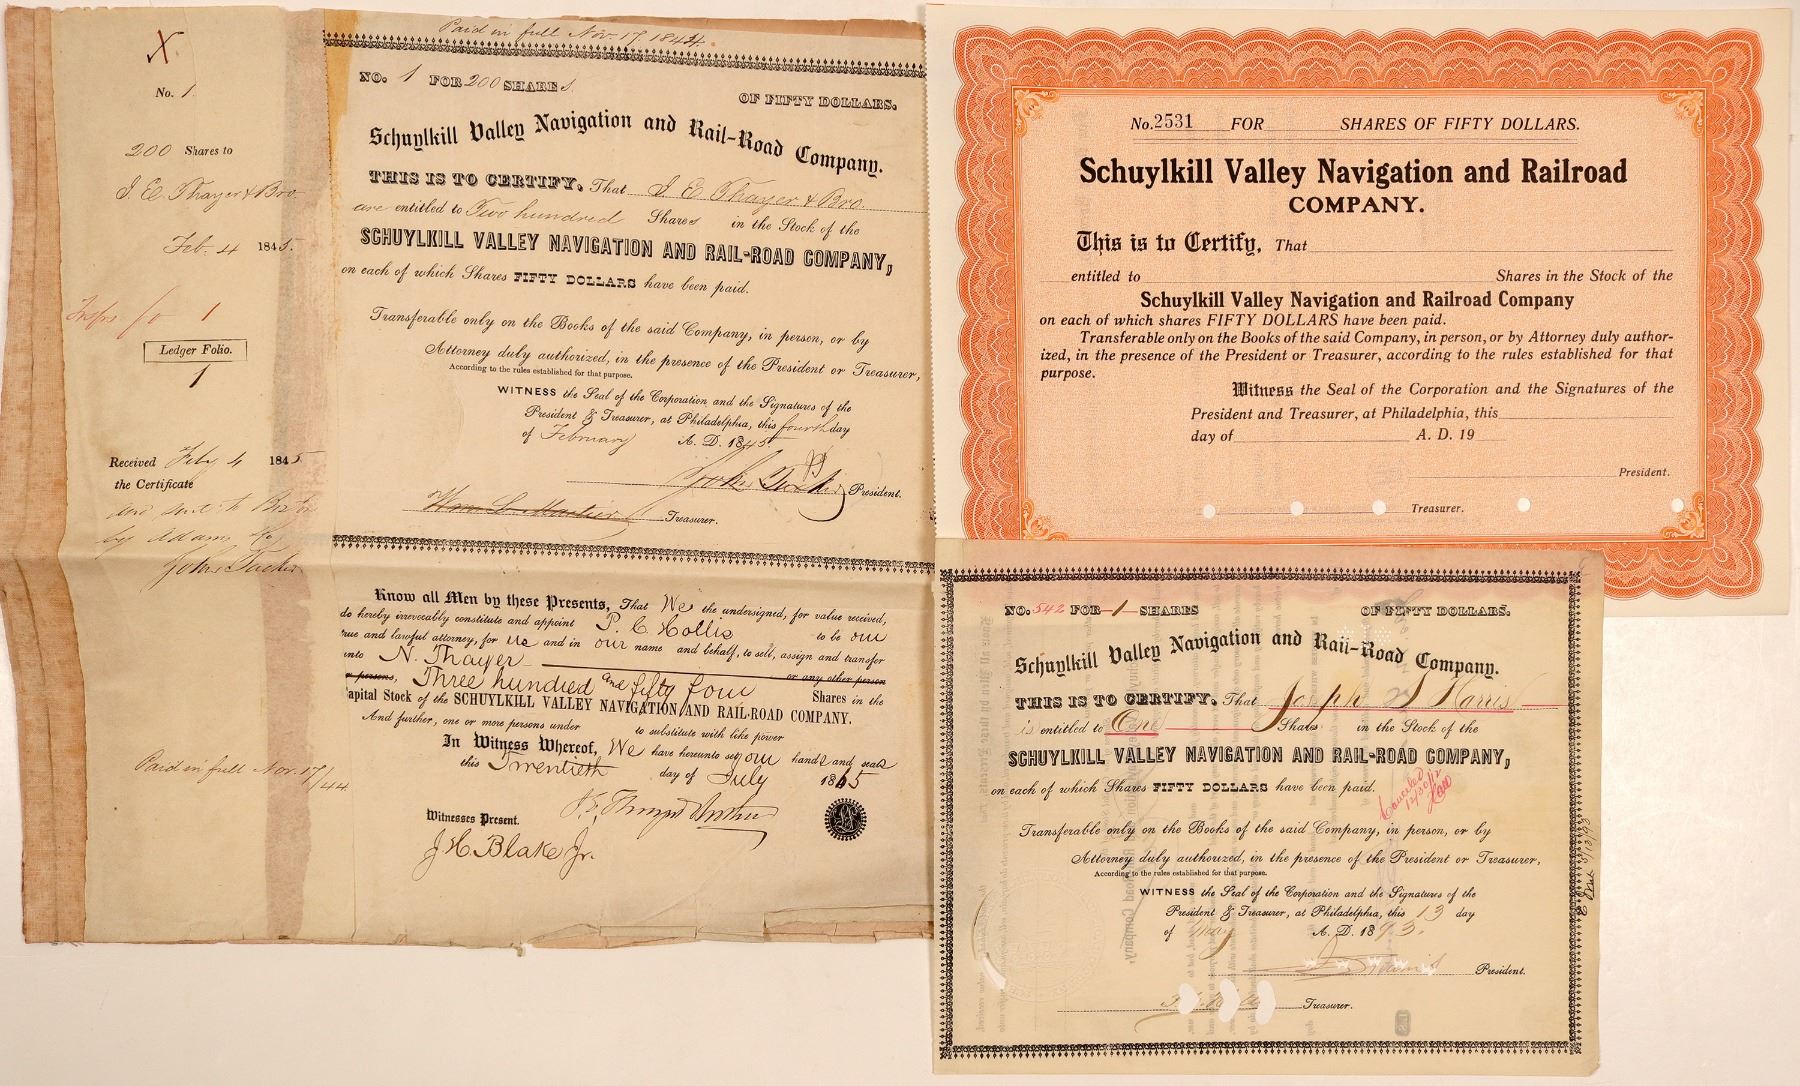 X
No. 1.
200 Shares to
J. E. Thayer & Bro.
Feb. 4 1845.
1
Ledger Folio.
1
Received Feby 4 1845
the Certificate
by Adams
John Tucker
Paid in full Nov. 17/44
Paid in full Nov. 17, 1844.
NO. 1 FOR 200 SHARES
OF FIFTY DOLLARS.
Schuylkill Valley Navigation and Rail-Road Company.
THIS IS TO CERTIFY, That J. E. Thayer & Bro.
are entitled to Two hundred Shares in the Stock of the
SCHUYLKILL VALLEY NAVIGATION AND RAIL-ROAD COMPANY,
on each of which Shares FIFTY DOLLARS have been paid.
Transferable only on the Books of the said Company, in person, or by
Attorney duly authorized, in the presence of the President or Treasurer,
According to the rules established for that purpose.
WITNESS the Seal of the Corporation and the Signatures of the
President & Treasurer, at Philadelphia, this fourth day
of February A. D. 1845
John Tucker President.
Treasurer.
Know all Men by these Presents, That We the undersigned, for value received,
do hereby irrevocably constitute and appoint P. C. Hollis to be our
rue and lawful attorney, for us and in our name and behalf, to sell, assign and transfer
into N. Thayer or any other person
or persons, Three hundred and fifty four Shares in the
apital Stock of the SCHUYLKILL VALLEY NAVIGATION AND RAIL-ROAD COMPANY.
And further, one or more persons under to substitute with like power
In Witness Whereof, We have hereunto set our hands and seals
this Twentieth day of July 1865
Witnesses Present.
J. H. Blake Jr.
No. 2531 FOR SHARES OF FIFTY DOLLARS.
Schuylkill Valley Navigation and Railroad
COMPANY.
This is to Certify, That
entitled to Shares in the Stock of the
Schuylkill Valley Navigation and Railroad Company
on each of which shares FIFTY DOLLARS have been paid.
Transferable only on the Books of the said Company, in person, or by Attorney duly author-
ized, in the presence of the President or Treasurer, according to the rules established for that
purpose.
Witness the Seal of the Corporation and the Signatures of the
President and Treasurer, at Philadelphia, this
day of A. D. 19
President.
Treasurer.
NO. 542 FOR 1 SHARES OF FIFTY DOLLARS.
Schuylkill Valley Navigation and Rail-Road Company.
THIS IS TO CERTIFY, That Joseph S Harris
is entitled to One Share in the Stock of the
SCHUYLKILL VALLEY NAVIGATION AND RAIL-ROAD COMPANY,
on each of which Shares FIFTY DOLLARS have been paid.
Cancelled
12/30/12
Transferable only on the Books of the said Company, in person, or by
Attorney duly authorized, in the presence of the President or Treasurer,
According to the rules established for that purpose.
WITNESS the Seal of the Corporation and the Signatures of the
President & Treasurer, at Philadelphia, this 13 day
of May A. D. 1893.
President.
Treasurer.
5/13/93